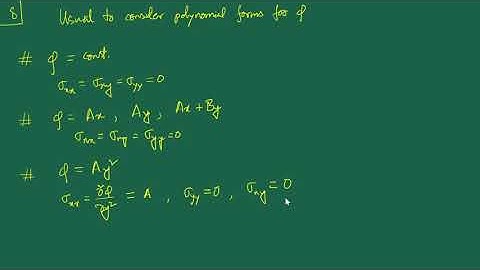 8
Usual to consider polynomial forms for φ
# φ = const.
σxx = σxy = σyy = 0
# φ = Ax , Ay , Ax + By
σxx = σxy = σyy = 0
# φ = Ay²
σxx = ∂²φ/∂y² = A , σyy = 0 , σxy = 0